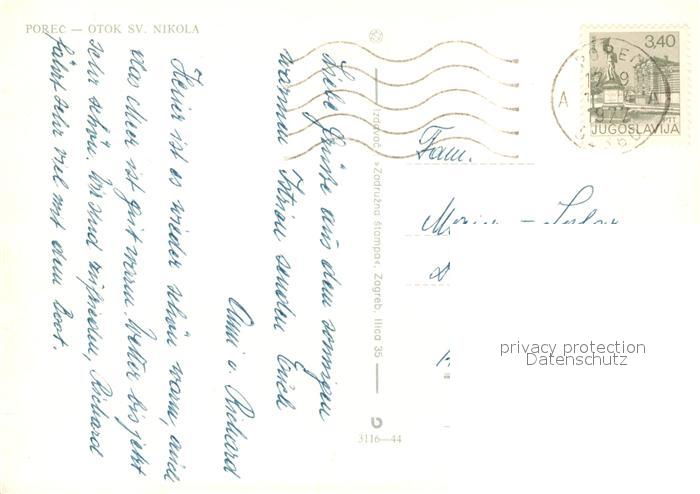 POREČ — OTOK SV. NIKOLA
Liebe Grüße aus dem sonnigen
warmen Istrien senden Euch
Anni u. Richard
Heuer ist es wieder schön warm, auch
das Meer ist gut warm. Wetter bis jetzt
sehr schön. Wir sind zufrieden, Richard
fährt sehr viel mit dem Boot.
Izdavač: »Zadružna štampa«, Zagreb, Ilica 35
3116—44
3,40
JUGOSLAVIJA
1977
A A
Fam.
privacy protection
Datenschutz